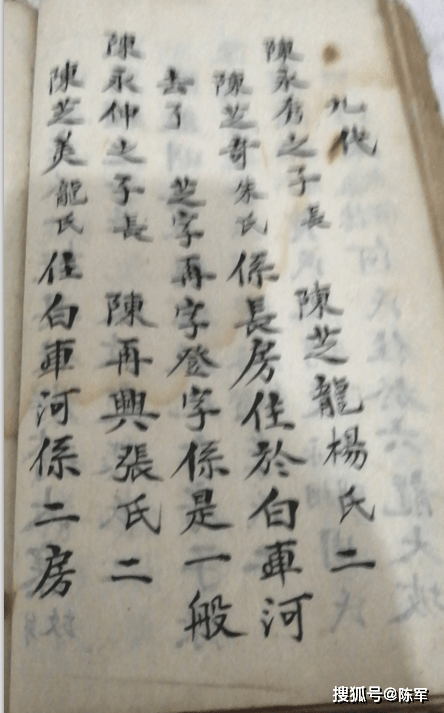 九代
陳永秀之子長 陳芝龍楊氏二
陳芝奇朱氏係長房住於白車河
去了 芝字再字登字係是一般
陳永仲之子長 陳再興張氏二
陳芝美龍氏住白車河係二房
搜狐号@陈军